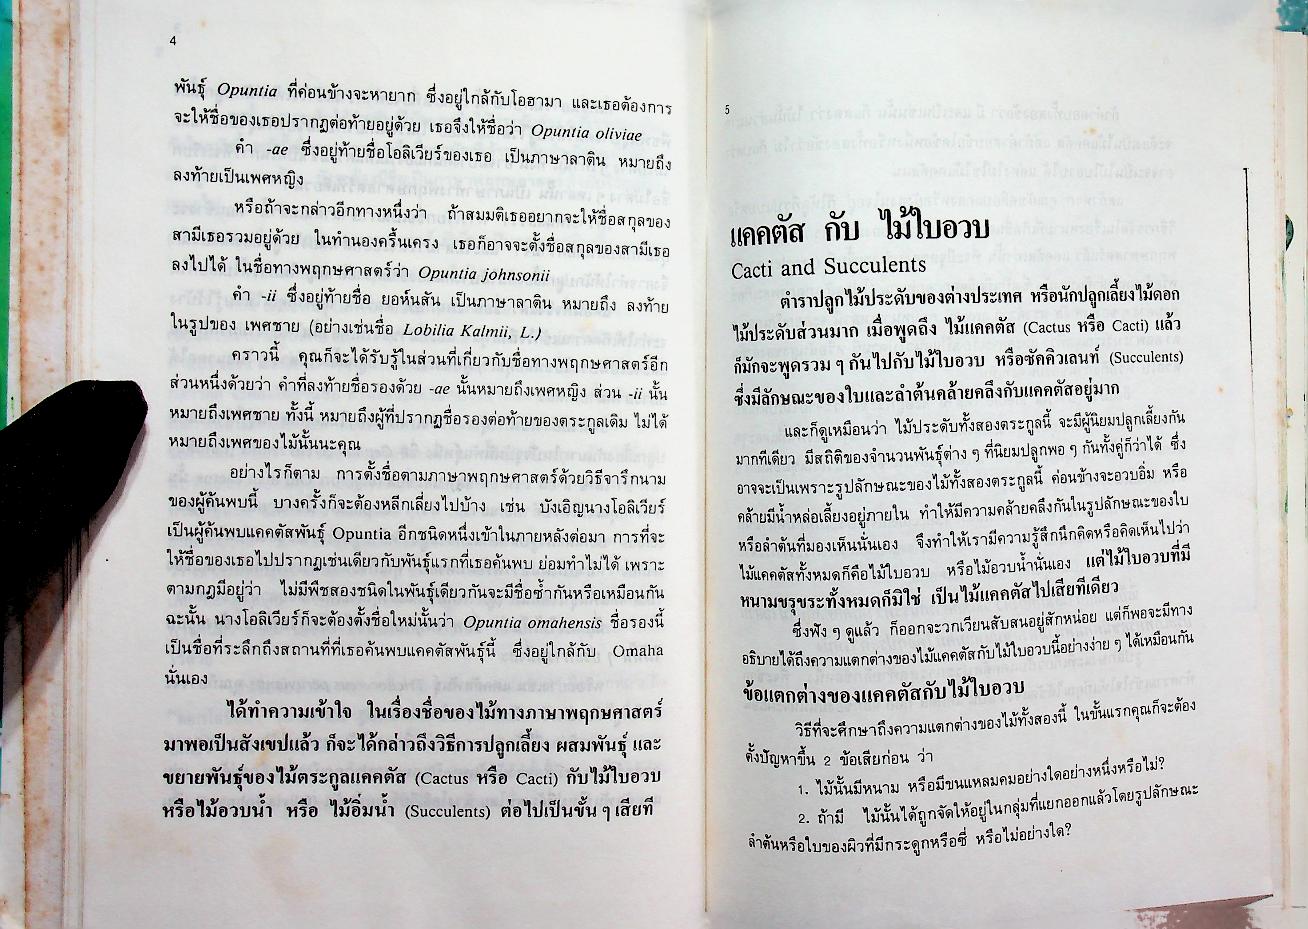 4
พันธุ์ Opuntia ที่ค่อนข้างจะหายาก ซึ่งอยู่ใกล้กับโอฮามา และเธอต้องการ
จะให้ชื่อของเธอปรากฏต่อท้ายอยู่ด้วย เธอจึงให้ชื่อว่า Opuntia oliviae
คำ -ae ซึ่งอยู่ท้ายชื่อโอลิเวียร์ของเธอ เป็นภาษาลาติน หมายถึง
ลงท้ายเป็นเพศหญิง
หรือถ้าจะกล่าวอีกทางหนึ่งว่า ถ้าสมมติเธออยากจะให้ชื่อสกุลของ
สามีเธอรวมอยู่ด้วย ในทำนองครื้นเครง เธอก็อาจจะตั้งชื่อสกุลของสามีเธอ
ลงไปได้ ในชื่อทางพฤกษศาสตร์ว่า Opuntia johnsonii
คำ -ii ซึ่งอยู่ท้ายชื่อ ยอห์นสัน เป็นภาษาลาติน หมายถึง ลงท้าย
ในรูปของ เพศชาย (อย่างเช่นชื่อ Lobilia Kalmii, L.)
คราวนี้ คุณก็จะได้รับรู้ในส่วนที่เกี่ยวกับชื่อทางพฤกษศาสตร์อีก
ส่วนหนึ่งด้วยว่า คำที่ลงท้ายชื่อรองด้วย -ae นั้นหมายถึงเพศหญิง ส่วน -ii นั้น
หมายถึงเพศชาย ทั้งนี้ หมายถึงผู้ที่ปรากฏชื่อรองต่อท้ายของตระกูลเดิม ไม่ได้
หมายถึงเพศของไม้นั้นนะคุณ
อย่างไรก็ตาม การตั้งชื่อตามภาษาพฤกษศาสตร์ด้วยวิธีจารึกนาม
ของผู้ค้นพบนี้ บางครั้งก็จะต้องหลีกเลี่ยงไปบ้าง เช่น บังเอิญนางโอลิเวียร์
เป็นผู้ค้นพบแคคตัสพันธุ์ Opuntia อีกชนิดหนึ่งเข้าในภายหลังต่อมา การที่จะ
ให้ชื่อของเธอไปปรากฏเช่นเดียวกับพันธุ์แรกที่เธอค้นพบ ย่อมทำไม่ได้ เพราะ
ตามกฎมีอยู่ว่า ไม่มีพืชสองชนิดในพันธุ์เดียวกันจะมีชื่อซ้ำกันหรือเหมือนกัน
ฉะนั้น นางโอลิเวียร์ก็จะต้องตั้งชื่อใหม่นั้นว่า Opuntia omahensis ชื่อรองนี้
เป็นชื่อที่ระลึกถึงสถานที่ที่เธอค้นพบแคคตัสพันธุ์นี้ ซึ่งอยู่ใกล้กับ Omaha
นั่นเอง
ได้ทำความเข้าใจ ในเรื่องชื่อของไม้ทางภาษาพฤกษศาสตร์
มาพอเป็นสังเขปแล้ว ก็จะได้กล่าวถึงวิธีการปลูกเลี้ยง ผสมพันธุ์ และ
ขยายพันธุ์ของไม้ตระกูลแคคตัส (Cactus หรือ Cacti) กับไม้ใบอวบ
หรือไม้อวบน้ำ หรือ ไม้อิ่มน้ำ (Succulents) ต่อไปเป็นขั้น ๆ เสียที
5
แคคตัส กับ ไม้ใบอวบ
Cacti and Succulents
ตำราปลูกไม้ประดับของต่างประเทศ หรือนักปลูกเลี้ยงไม้ดอก
ไม้ประดับส่วนมาก เมื่อพูดถึง ไม้แคคตัส (Cactus หรือ Cacti) แล้ว
ก็มักจะพูดรวม ๆ กันไปกับไม้ใบอวบ หรือซัคคิวเลนท์ (Succulents)
ซึ่งมีลักษณะของใบและลำต้นคล้ายคลึงกับแคคตัสอยู่มาก
และก็ดูเหมือนว่า ไม้ประดับทั้งสองตระกูลนี้ จะมีผู้นิยมปลูกเลี้ยงกัน
มากทีเดียว มีสถิติของจำนวนพันธุ์ต่าง ๆ ที่นิยมปลูกพอ ๆ กันทั้งคู่ก็ว่าได้ ซึ่ง
อาจจะเป็นเพราะรูปลักษณะของไม้ทั้งสองตระกูลนี้ ค่อนข้างจะอวบอิ่ม หรือ
คล้ายมีน้ำหล่อเลี้ยงอยู่ภายใน ทำให้มีความคล้ายคลึงกันในรูปลักษณะของใบ
หรือลำต้นที่มองเห็นนั่นเอง จึงทำให้เรามีความรู้สึกนึกคิดหรือคิดเห็นไปว่า
ไม้แคคตัสทั้งหมดก็คือไม้ใบอวบ หรือไม้อวบน้ำนั่นเอง แต่ไม้ใบอวบที่มี
หนามขรุขระทั้งหมดก็มิใช่ เป็นไม้แคคตัสไปเสียทีเดียว
ซึ่งฟัง ๆ ดูแล้ว ก็ออกจะวกเวียนสับสนอยู่สักหน่อย แต่ก็พอจะมีทาง
อธิบายได้ถึงความแตกต่างของไม้แคคตัสกับไม้ใบอวบนี้อย่างง่าย ๆ ได้เหมือนกัน
ข้อแตกต่างของแคคตัสกับไม้ใบอวบ
วิธีที่จะศึกษาถึงความแตกต่างของไม้ทั้งสองนี้ ในขั้นแรกคุณก็จะต้อง
ตั้งปัญหาขึ้น 2 ข้อเสียก่อน ว่า
1. ไม้นั้นมีหนาม หรือมีขนแหลมคมอย่างใดอย่างหนึ่งหรือไม่?
2. ถ้ามี ไม้นั้นได้ถูกจัดให้อยู่ในกลุ่มที่แยกออกแล้วโดยรูปลักษณะ
ลำต้นหรือใบของผิวที่มีกระดูกหรือซี่ หรือไม่อย่างใด?